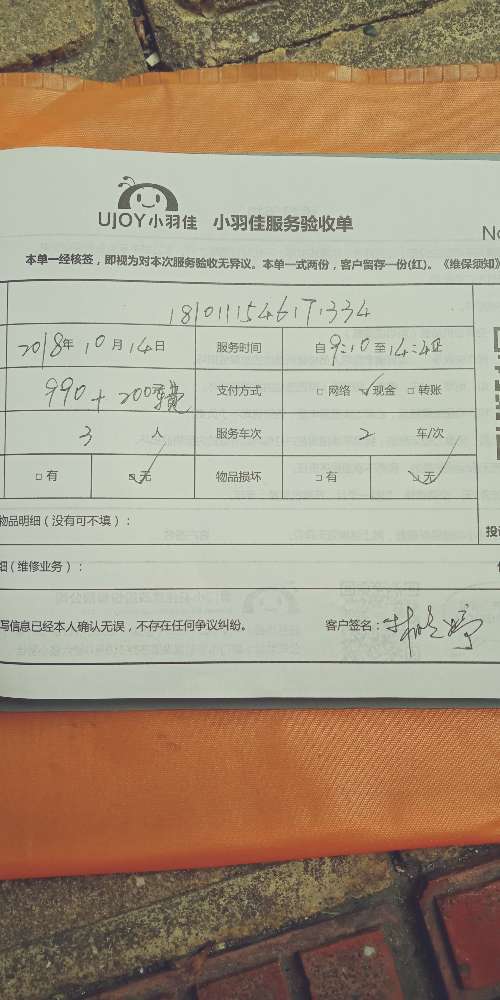 UJOY小羽佳 小羽佳服务验收单
No
本单一经核签，即视为对本次服务验收无异议。本单一式两份，客户留存一份(红)。《维保须知》
1810111546171334
2018年 10月 14日 服务时间 自 9:10 至 14:
990 + 200 支付方式 □ 网络 ✓现金 □ 转账
3 人 服务车次 2 车/次
□ 有 ☑ 无 物品损坏 □ 有 ☑ 无
物品明细（没有可不填）：
投
细（维修业务）：
写信息已经本人确认无误，不存在任何争议纠纷。 客户签名：